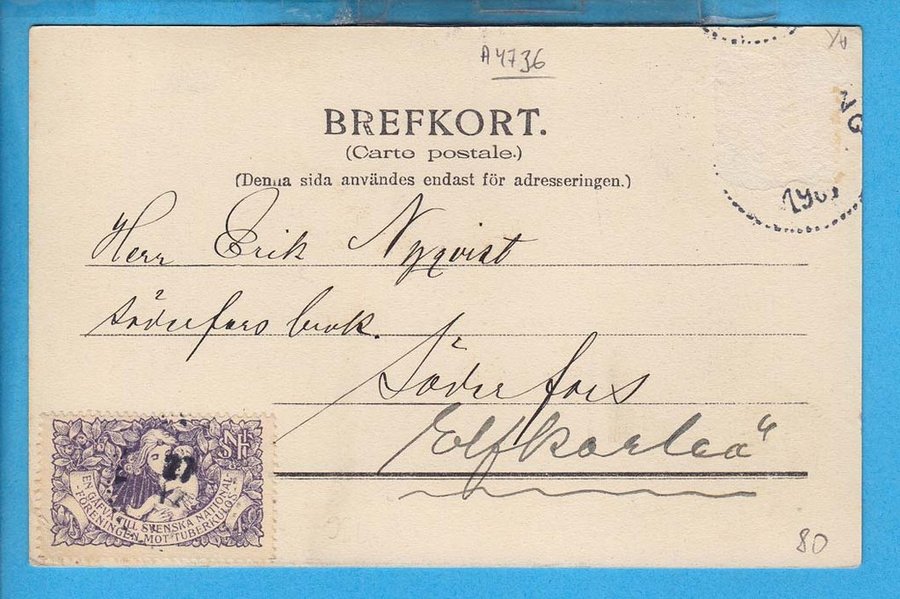 A4736
BREFKORT.
(Carte postale.)
(Denna sida användes endast för adresseringen.)
NG
Herr Erik Nyqvist
Söderfors bruk.
Söderfors
"Elfkarleö"
EN GÅFVA TILL SVENSKA NATIONAL-
FÖRENINGEN MOT TUBERKULOS
27
80